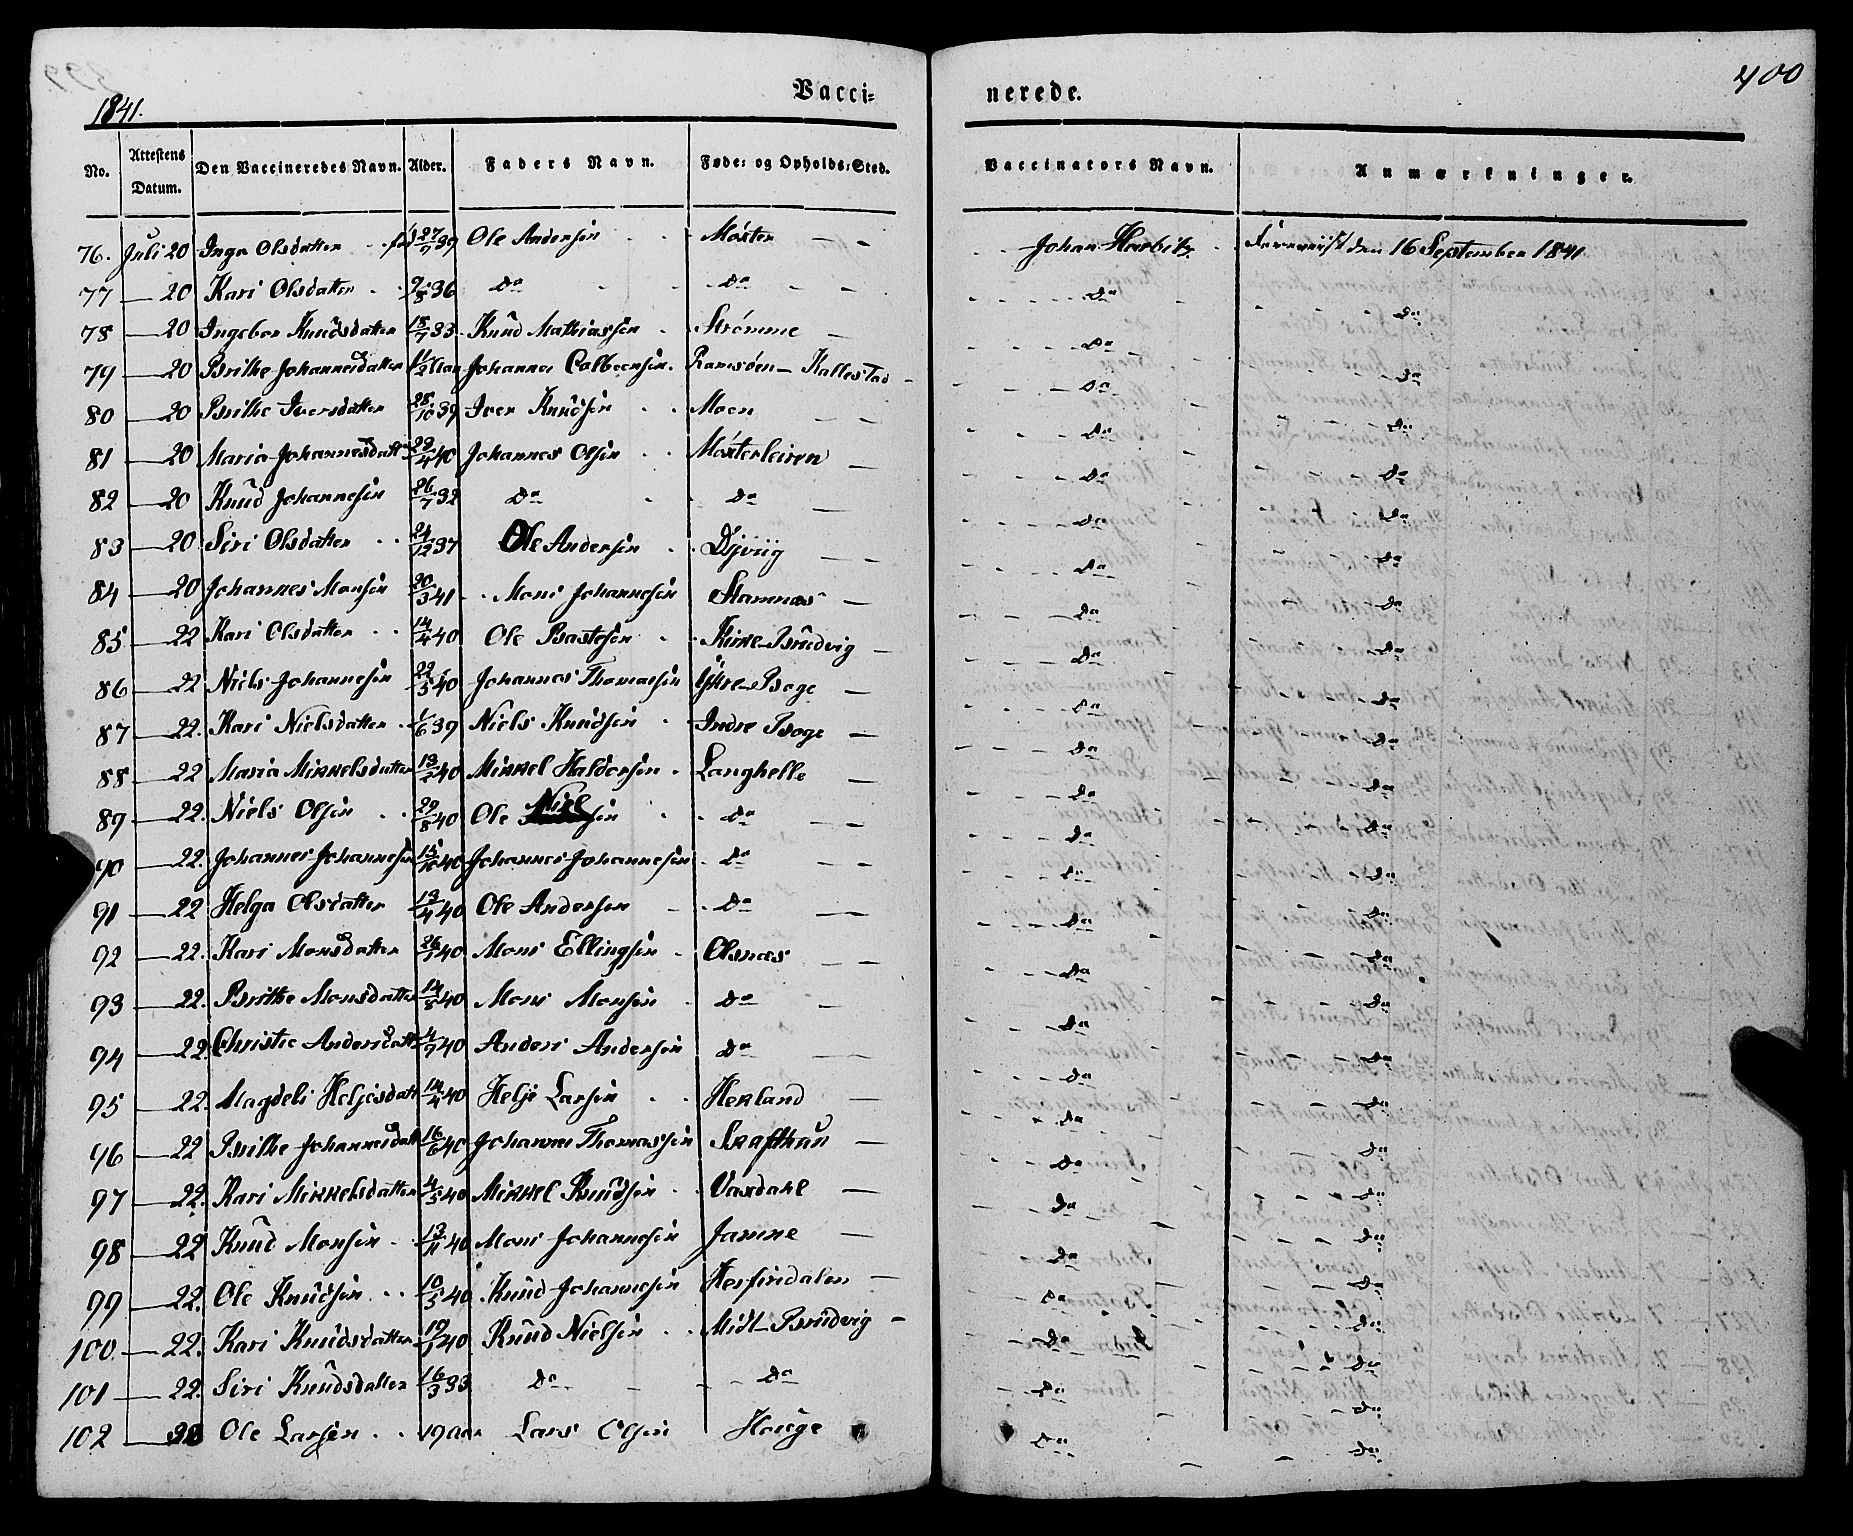 400
1841.
Vacci=
nerede.
No. Attestens Datum. Den Vaccineredes Navn. Alder. Faders Navn. Føde= og Opholds=Sted. Vaccinators Navn. Anmærkninger.
76. Juli 20 Inga Olsdatter fød 27/7 39 Ole Andersen Moster Johan Harbitz Fremviist den 16 September 1841
77 — 20 Kari Olsdatter 2/8 36 Do Do Do Do
78 — 20 Ingebor Knudsdatter 18/7 33 Knud Mathiassen Strømme Do Do
79 — 20 Brithe Johannesdatter Johannes Ramsøen - Kallestad Do Do
80 — 20 Brithe Iversdatter 28/10 39 Iver Knudsen Moen Do Do
81 — 20 Maria Johannesdatter 29/4 40 Johannes Olsen Mosterleiren Do Do
82 — 20 Knud Johannesen 26/7 32 Do Do Do Do
83 — 20 Siri Olsdatter 24/12 37 Ole Andersen Do Do
84 — 20 Johannes Monsen 20/3 41 Mons Johannesen Stamnæs Do Do
85 — 22 Kari Olsdatter 14/4 40 Ole Kirke-Brudvig Do Do
86 — 22 Niels Johannesen 22/5 40 Johannes Thomassen Ytre-Boge Do Do
87 — 22. Kari Nielsdatter 1/6 39 Niels Knudsen Indre Boge Do Do
88 — 22 Maria Mikkelsdatter 40 Mikkel Haldorsen Langhelle Do Do
89 — 22. Niels Olsen 29/8 40 Ole Nielsen Do Do Do
90 — 22. Johannes Johannesen 15/10 40 Johannes Johannesen Do Do Do
91 — 22 Helga Olsdatter 19/4 40 Ole Andersen Do Do Do
92 — 22. Kari Monsdatter 40 Mons Ellingsen Olsnæs Do Do
93 — 22. Brithe Monsdatter 14/8 40 Mons Monsen Do Do Do
94 — 22 Christie Andersdatt 4/9 40 Anders Andersen Do Do Do
95 — 22. Magdeli Heljesdatt 40 Helje Larsen Herland Do Do
96 — 22 Brithe Johannesdatt 16/6 40 Johannes Thomassen Skafthun Do Do
97 — 22. Kari Mikkelsdatter 4/5 40 Mikkel Knudsen Vaxdahl Do Do
98 — 22 Knud Monsen 13/11 40 Mons Johannesen Jamne Do Do
99 — 22. Ole Knudsen 10/5 40 Knud Johannesen Hesfiendalen Do Do
100. — 22. Kari Knudsdatter 40 Knud Nielsen Midt-Brudvig Do Do
101 — 22. Siri Knudsdatter 16/3 33 Do Do Do Do
102 — Ole Larsen 19 Aar Lars Olsen Houge Do Do